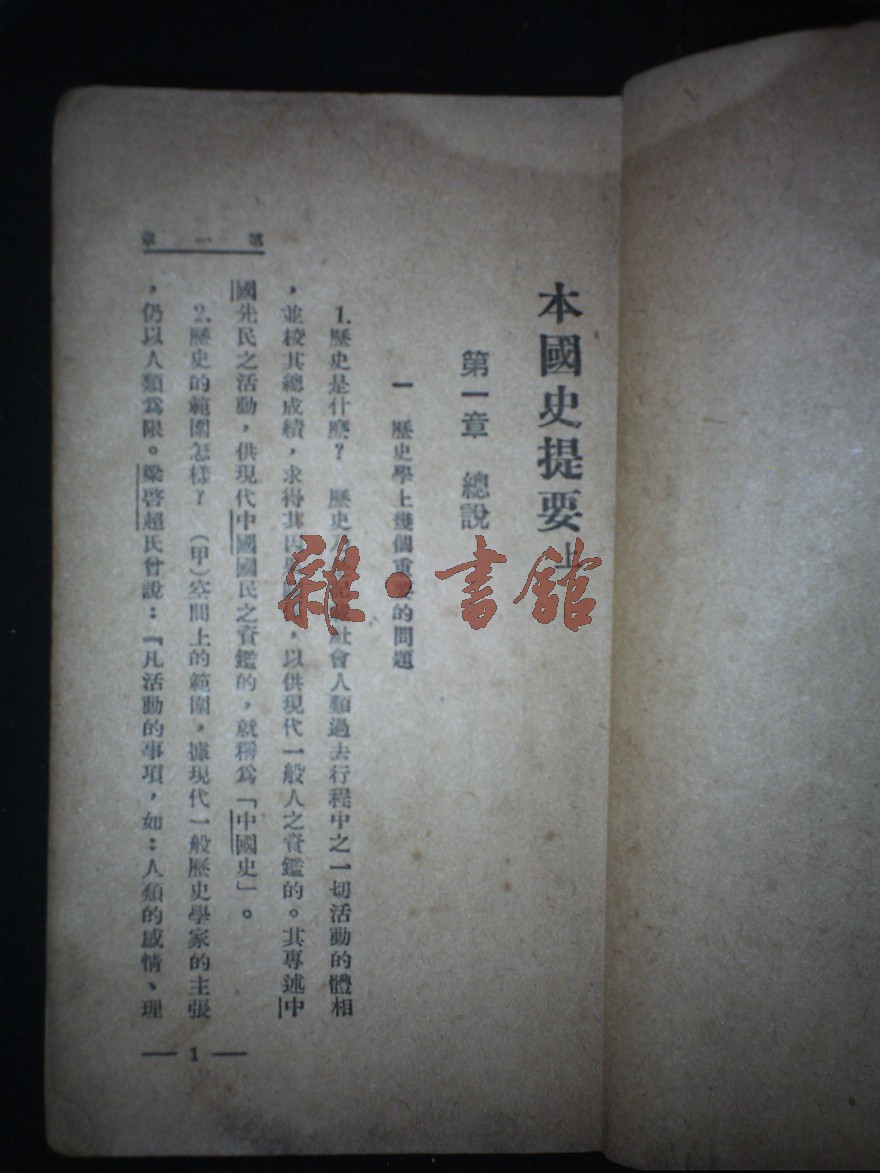 本國史提要 上
第一章 總說
一 歷史學上幾個重要的問題
1.歷史是什麼? 歷史 記 社會人類過去行程中之一切活動的體相
,並校其總成績,求得其因 ,以供現代一般人之資鑑的。其專述中
國先民之活動,供現代中國國民之資鑑的,就稱爲「中國史」。
2.歷史的範圍怎樣? (甲)空間上的範圍,據現代一般歷史學家的主張
,仍以人類爲限。梁啓超氏曾說:「凡活動的事項,如:人類的感情、理
第一章
— 1 —
雜·書館